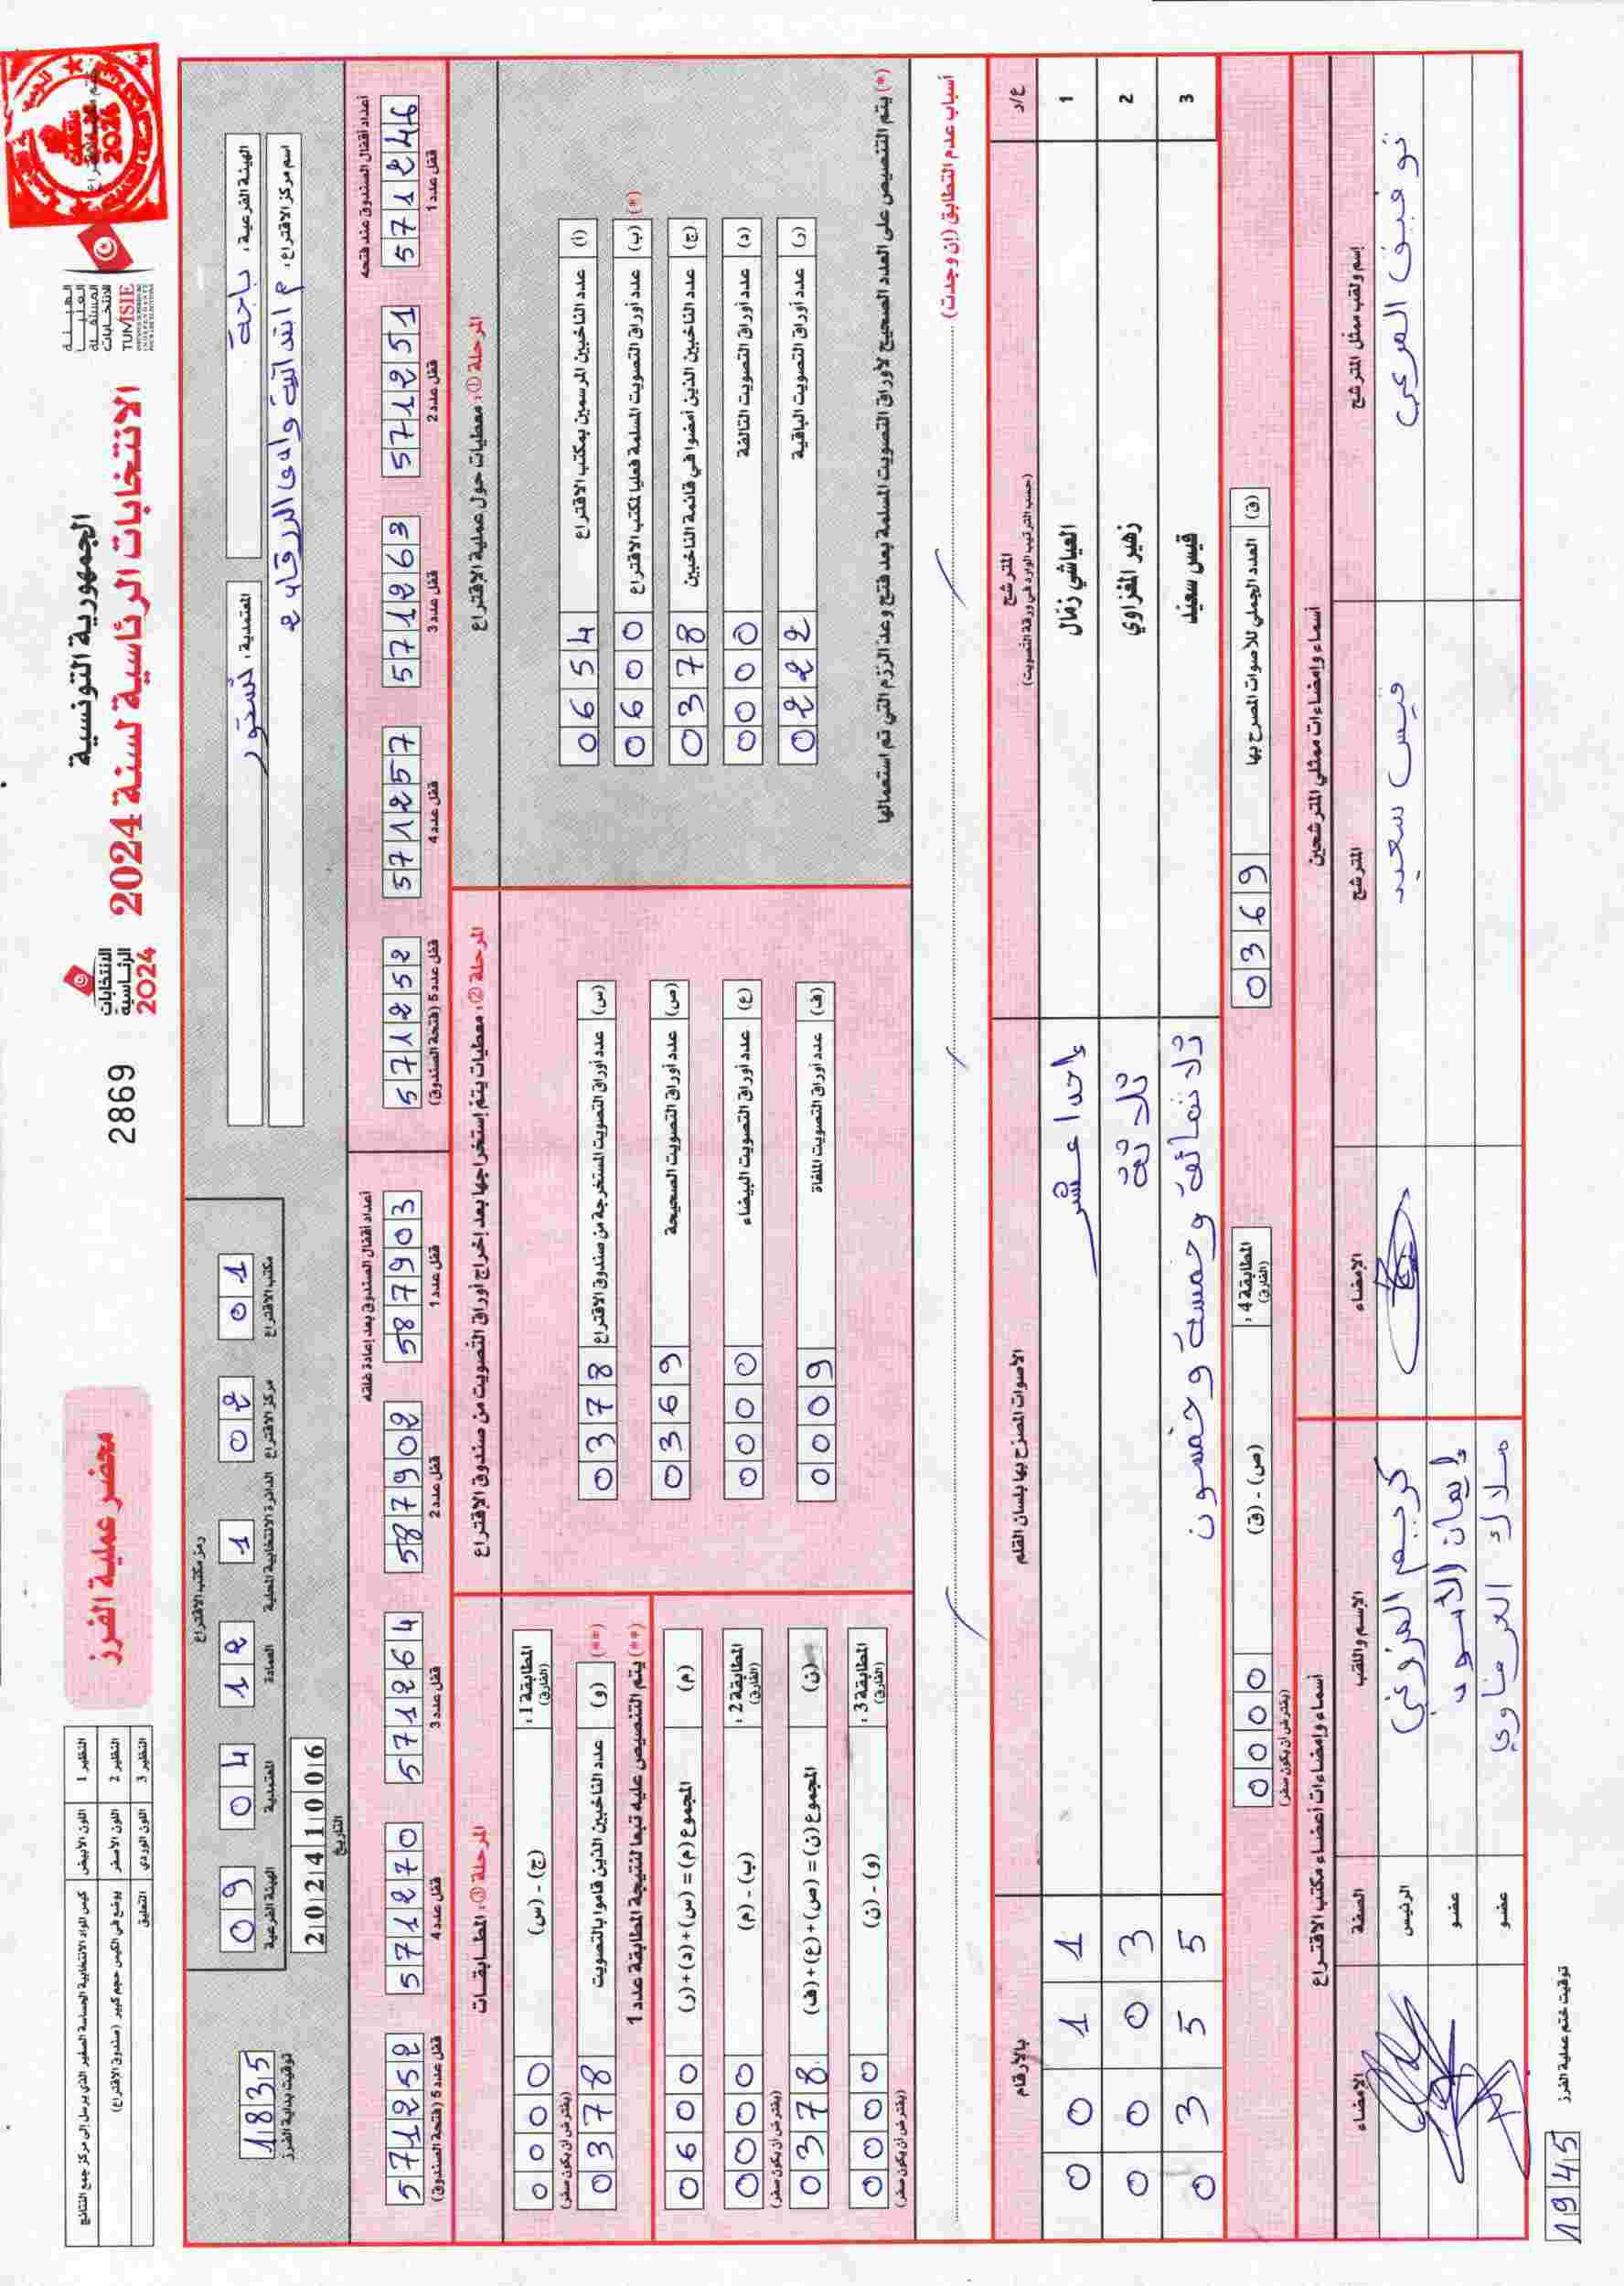 الجمهورية التونسية
الانتخابات الرئاسية لسنة 2024
الهيئة العليا المستقلة للانتخابات
TUNISIE
الانتخابات الرئاسية 2024
2869
محضر عملية الفرز
النظير 1 اللون الأبيض كيس المواد الانتخابية الحساسة الصغير الذي يرسل إلى مركز جمع النتائج
النظير 2 اللون الأصفر يوضع في الكيس حجم كبير (صندوق الاقتراع)
النظير 3 اللون الوردي التعليق
الهيئة الفرعية: باجة
المعتمدية: تستور
اسم مركز الاقتراع: م ابتدائية وادي الزرقاء 2
رمز مكتب الاقتراع
09 04 12 1 02 01
الهيئة الفرعية المعتمدية العمادة الدائرة الانتخابية المحلية مركز الاقتراع مكتب الاقتراع
20241006
التاريخ
1835
توقيت بداية الفرز
أعداد أقفال الصندوق عند فتحه
571246 قفل عدد 1
571251 قفل عدد 2
571263 قفل عدد 3
571257 قفل عدد 4
571252 قفل عدد 5 (فتحة الصندوق)
أعداد أقفال الصندوق بعد إعادة غلقه
587903 قفل عدد 1
587902 قفل عدد 2
571264 قفل عدد 3
571270 قفل عدد 4
571252 قفل عدد 5 (فتحة الصندوق)
المرحلة ①: معطيات حول عملية الاقتراع
(ا) عدد الناخبين المرسمين بمكتب الاقتراع 0654
(ب) عدد أوراق التصويت المسلمة فعليا لمكتب الاقتراع 0600 (*)
(ج) عدد الناخبين الذين أمضوا في قائمة الناخبين 0378
(د) عدد أوراق التصويت التالفة 0000
(ر) عدد أوراق التصويت الباقية 0222
(*) يتم التنصيص على العدد الصحيح لأوراق التصويت المسلمة بعد فتح وعد الرزم التي تم استعمالها
المرحلة ②: معطيات يتم إستخراجها بعد إخراج أوراق التصويت من صندوق الاقتراع
(س) عدد أوراق التصويت المستخرجة من صندوق الاقتراع 0378
(ص) عدد أوراق التصويت الصحيحة 0369
(ع) عدد أوراق التصويت البيضاء 0000
(ف) عدد أوراق التصويت الملغاة 0009
المرحلة ③: المطابقات
المطابقة 1: (الفارق) (ج) - (س) 0000 (يفترض أن يكون صفر)
(و) عدد الناخبين الذين قاموا بالتصويت 0378 (**)
(**) يتم التنصيص عليه تبعا لنتيجة المطابقة عدد 1
(م) المجموع (م) = (س)+(د)+(ر) 0600
المطابقة 2: (الفارق) (ب) - (م) 0000 (يفترض أن يكون صفر)
(ن) المجموع (ن) = (ص)+(ع)+(ف) 0378
المطابقة 3: (الفارق) (و) - (ن) 0000 (يفترض أن يكون صفر)
أسباب عدم التطابق (إن وجدت)
ع/د المترشح (حسب الترتيب الوارد في ورقة التصويت) الأصوات المصرح بها بلسان القلم بالأرقام
1 العياشي زمال إحدا عشر 0011
2 زهير المغزاوي ثلاثة 0003
3 قيس سعيد ثلاثمائة وخمسة وخمسون 0355
(ق) العدد الجملي للأصوات المصرح بها 0369
المطابقة 4: (الفارق) (ص) - (ق) 0000 (يفترض أن يكون صفر)
أسماء وإمضاءات ممثلي المترشحين
إسم ولقب ممثل المترشح المترشح الإمضاء
توفيق المرعي قيس سعيد
أسماء وإمضاءات أعضاء مكتب الاقتراع
الإسم واللقب الصفة الإمضاء
كريم المزوغي الرئيس
إيمان الأسود عضو
ملاك العرفاوي عضو
1945 توقيت ختم عملية الفرز